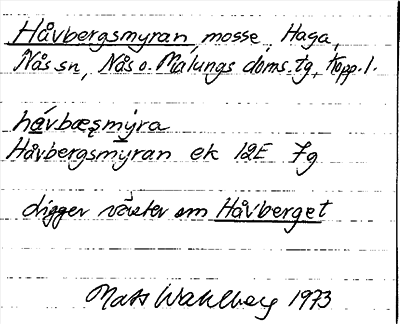 Håvbergsmyran mosse, Haga,
Nås sn, Nås o. Malungs doms. tg, Kopp. l.
hávbæșmy̆ra
Håvbergsmyran ek 12E 7g
ligger väster om Håvberget
Mats Wahlberg 1973